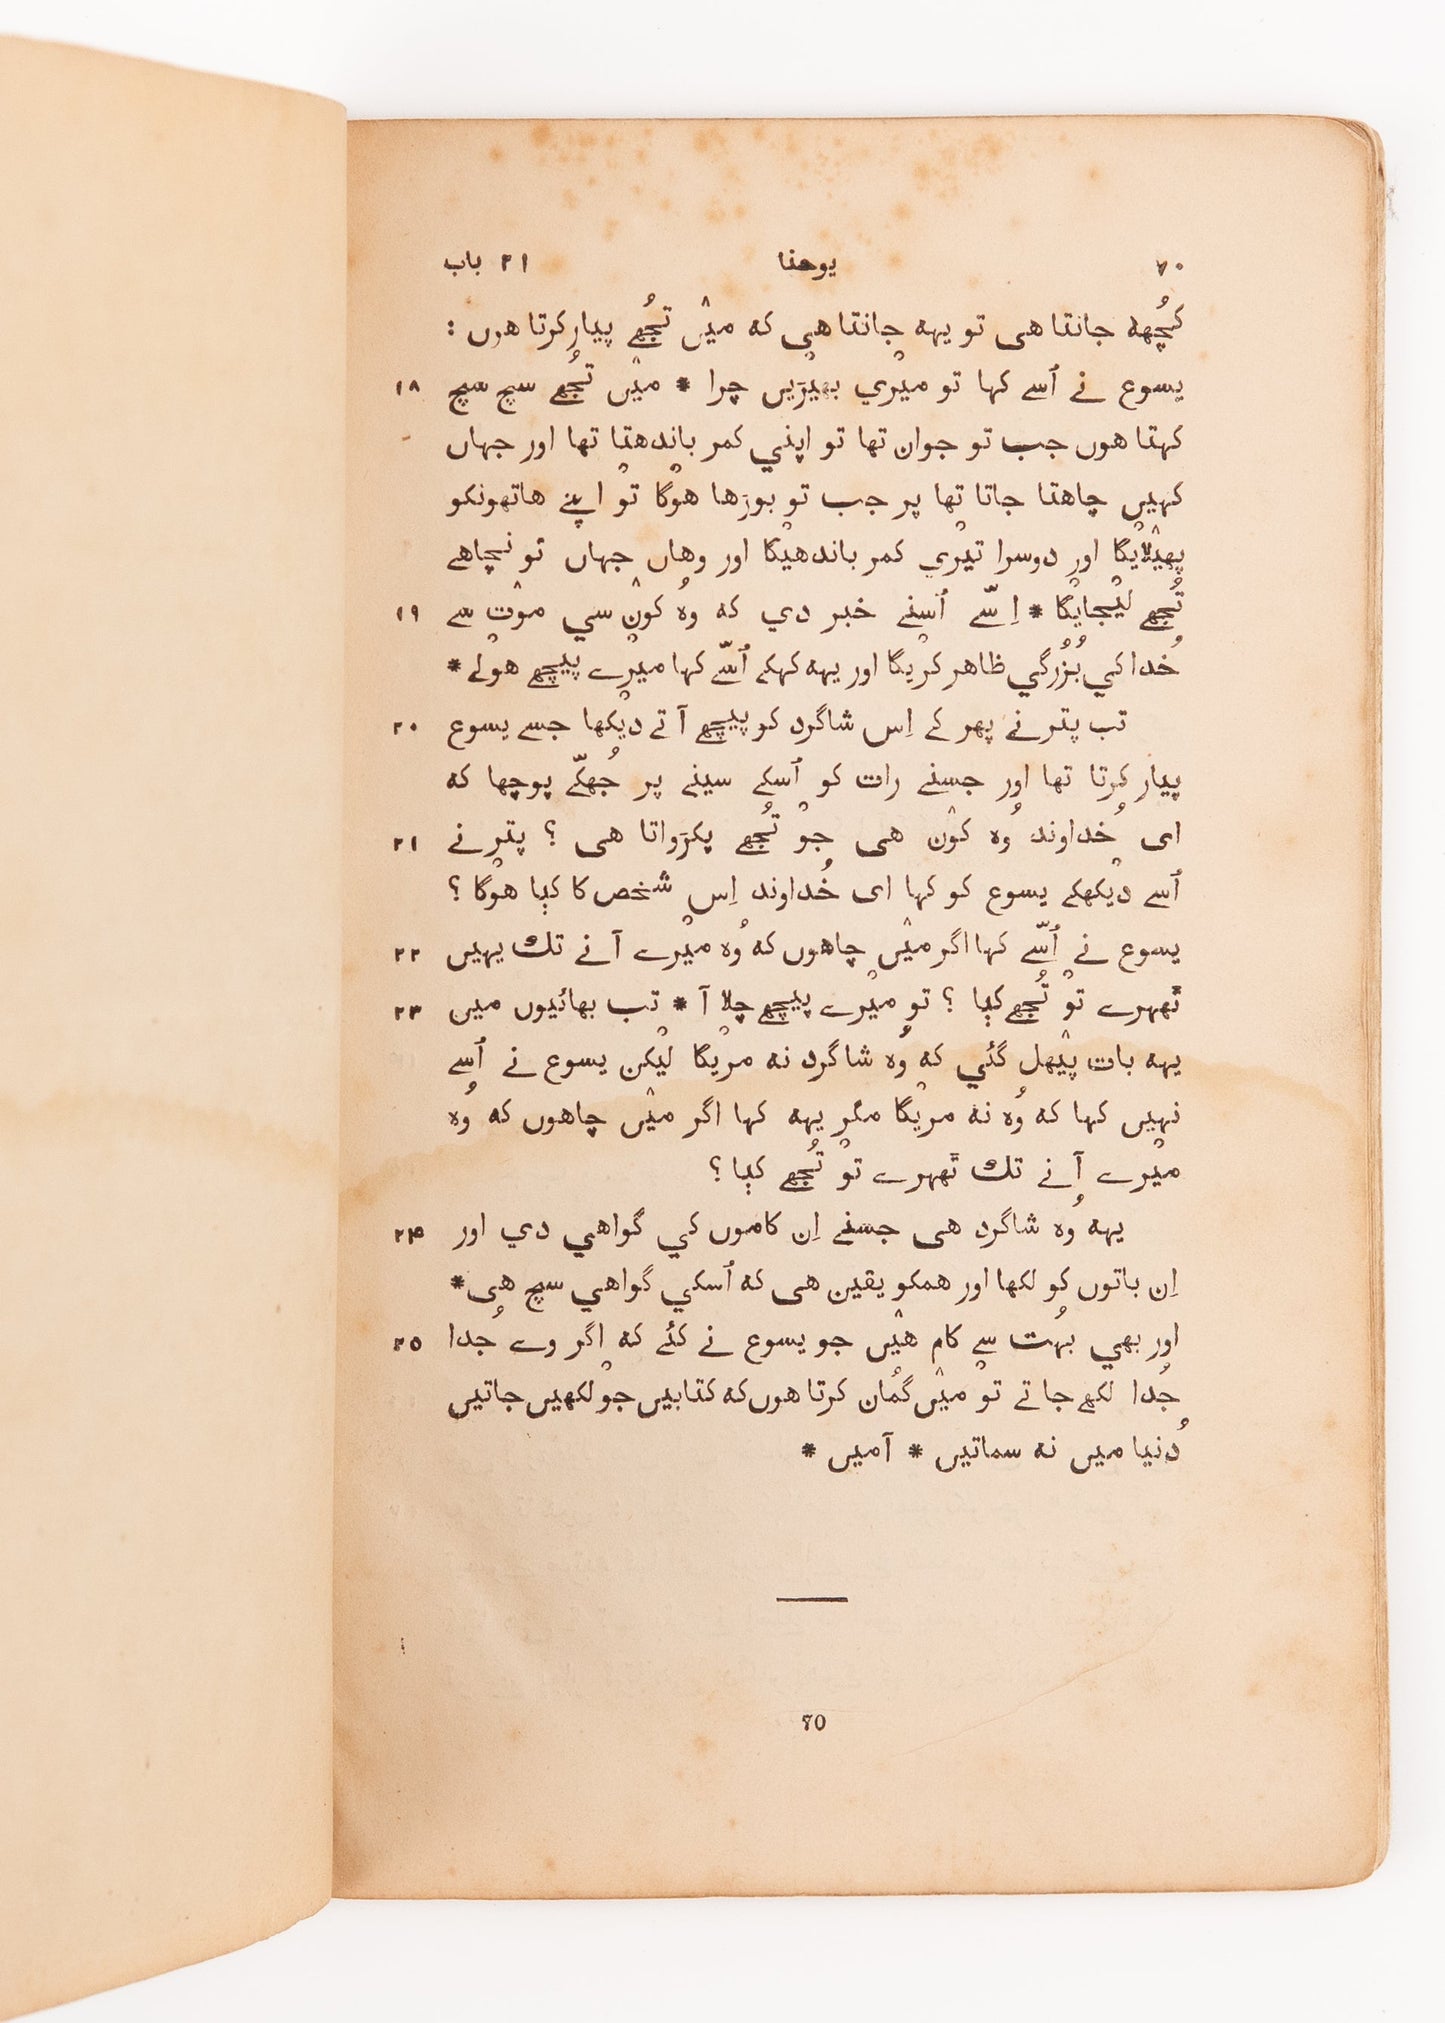 ۷۰ یوحنا ۲۱ باب
کُچھہ جانتا ھی تو یہہ جانتا ھی کہ میں تُجھے پیار کرتا ھوں :
یسوع نے اُسے کہا تو میري بھیڑیں چرا * میں تُجھے سچ سچ ۱۸
کہتا ھوں جب تو جوان تھا تو اپني کمر باندھتا تھا اور جہاں
کہیں چاھتا جاتا تھا پر جب تو بوڑھا ھوگا تو اپنے ھاتھونکو
پھیلایگا اور دوسرا تیري کمر باندھیگا اور وھاں جہاں تو نچاھے
تُجھے لیجایگا * اِسّے اُسنے خبر دي کہ وُہ کون سي موت سے ۱۹
خُدا کي بُزُرگي ظاھر کریگا اور یہہ کہکے اُسّے کہا میرے پیچھے ھولے *
تب پتر نے پھر کے اِس شاگرد کو پیچھے آتے دیکھا جسے یسوع ۲۰
پیار کرتا تھا اور جسنے رات کو اُسکے سینے پر جُھکّے پوچھا کہ
ای خُداوند وُہ کون ھی جو تُجھے پکڑواتا ھی ؟ پتر نے ۲۱
اُسے دیکھکے یسوع کو کہا ای خُداوند اِس شخص کا کیا ھوگا ؟
یسوع نے اُسّے کہا اگر میں چاھوں کہ وُہ میرے آنے تک یہیں ۲۲
ٹھہرے تو تُجھے کیا ؟ تو میرے پیچھے چلا آ * تب بھائیوں میں ۲۳
یہہ بات پیھل گئي کہ وُہ شاگرد نہ مریگا لیکن یسوع نے اُسے
نہیں کہا کہ وُہ نہ مریگا مگر یہہ کہا اگر میں چاھوں کہ وُہ
میرے آنے تک ٹھہرے تو تُجھے کیا ؟
یہہ وُہ شاگرد ھی جسنے اِن کاموں کي گواھي دي اور ۲۴
اِن باتوں کو لکھا اور ھمکو یقین ھی کہ اُسکي گواھي سچ ھی *
اور بھي بہُت سے کام ھیں جو یسوع نے کئے کہ اگر وے جُدا ۲۵
جُدا لکھے جاتے تو میں گُمان کرتا ھوں کہ کتابیں جو لکھیں جاتیں
دُنیا میں نہ سماتیں * آمیں *
70